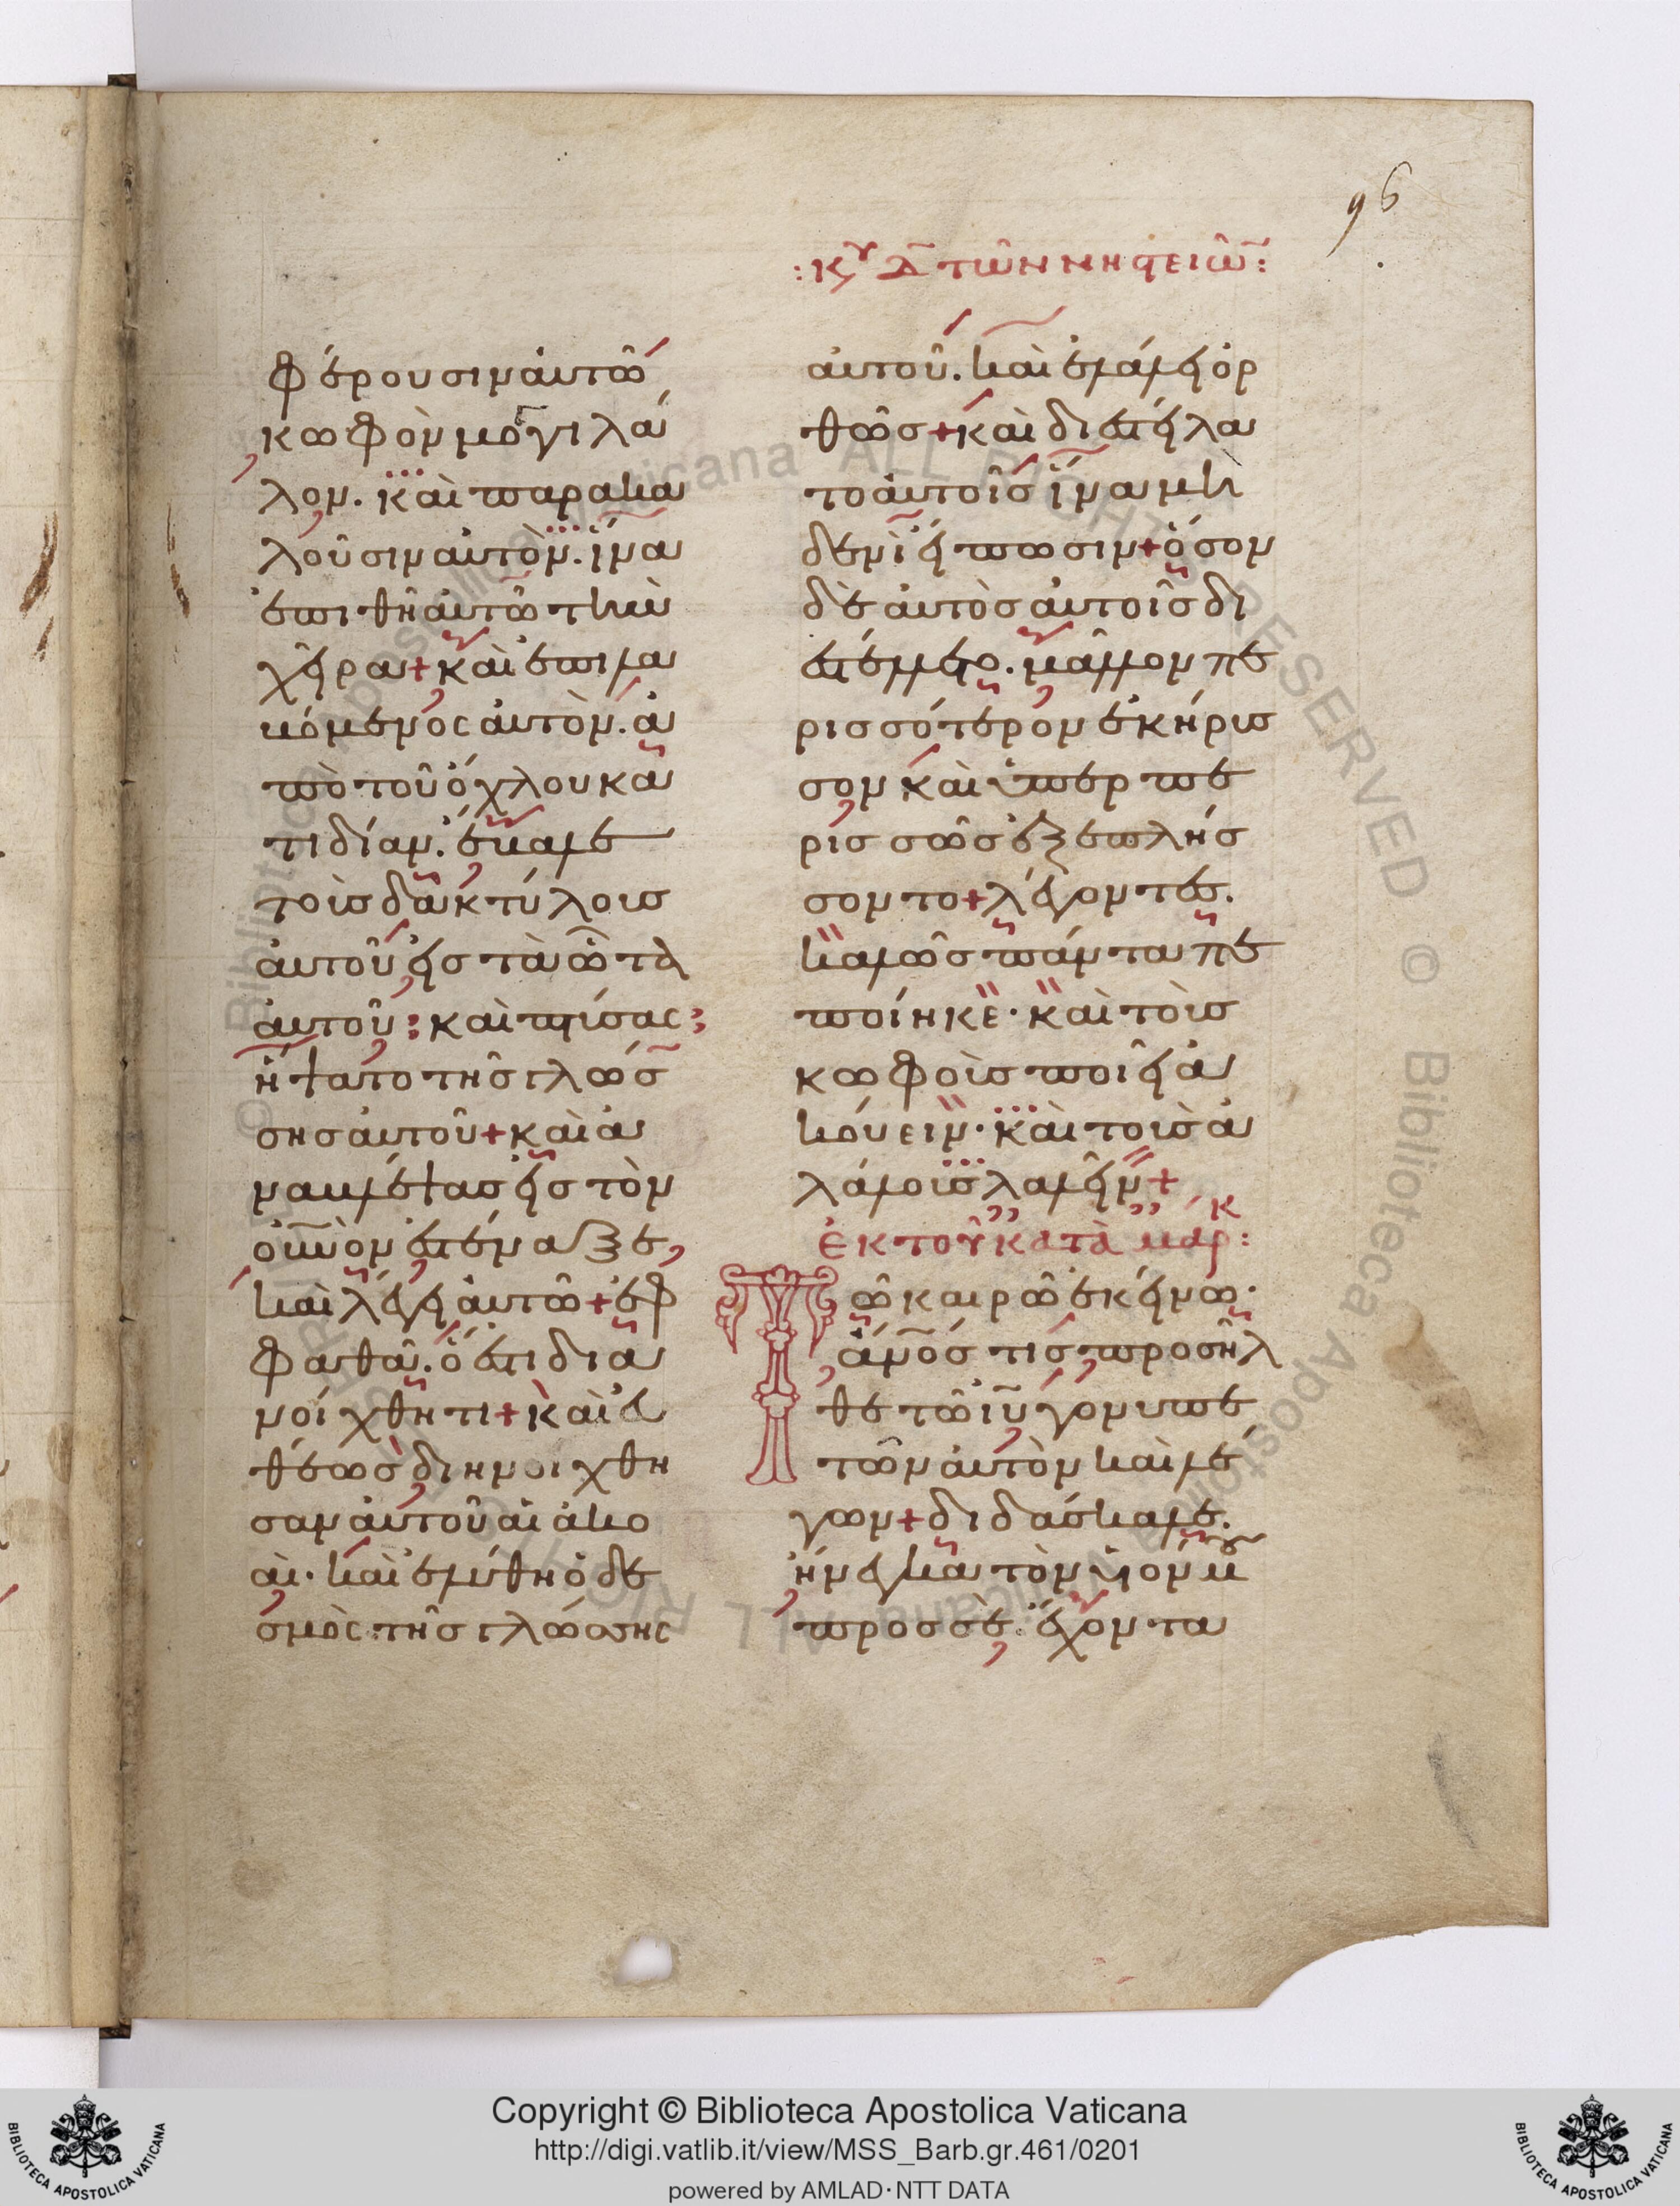 96
φέρουσιν αὐτῶ
κωφὸν μογγιλά
λον. καὶ παρακα
λοῦσιν αὐτὸν. ἵνα
ἐπιθῆ αὐτῶ τὴν
χεῖρα + καὶ ἐπιλα
βόμενος αὐτὸν. ἀ
πὸ τοῦ ὄχλου κα
τιδίαν. ἔβαλε
τοὺς δακτύλους
αὐτοῦ εἰς τὰ ὦτα
αὐτοῦ: καὶ πτύσας:
ἥψατο τῆς γλώσ
σης αὐτοῦ + καὶ ἀ
ναβλέψας εἰς τὸν
οὐνὸν ἐστέναξε,
καὶ λέγει αὐτῶ + ἐφ
φαθά. ὅ ἐστι δια
νοίχθητι + καὶ εὐ
θέως διηνοίχθη
σαν αὐτοῦ αἱ ἀκο
αὶ. καὶ ἐλύθη ὁ δε
σμὸς τῆς γλώσσης
: Κυ Δ τῶν νηστειῶ :
αὐτοῦ. καὶ ἐλάλει ὀρ
θῶς + καὶ διεστείλα
το αὐτοῖς ἵνα μὴ
δενὶ εἴπωσιν + ὅσον
δὲ αὐτὸς αὐτοῖς δι
εστέλλετο. μᾶλλον πε
ρισσότερον ἐκήρυσ
σον καὶ ὑπερ πε
ρισσῶς ἐξεπλήσ
σοντο + λέγοντες.
καλῶς πάντα πε
ποίηκε. καὶ τοὺς
κωφοὺς ποιεῖ ἀ
κούειν. καὶ τοὺς ἀ
λάλους λαλεῖν +
ἐκ τοῦ κατὰ μάρκ :
Τῶ καιρῶ ἐκείνω.
ἀνός τις προσῆλ
θε τῶ ιυ γονυπε
τῶν αὐτὸν καὶ λέ
γων + διδάσκαλε.
ἤνεγκα τὸν υἱόν μου
πρὸς σὲ. ἔχοντα
Copyright © Biblioteca Apostolica Vaticana
http://digi.vatlib.it/view/MSS_Barb.gr.461/0201
powered by AMLAD·NTT DATA
BIBLIOTECA APOSTOLICA VATICANA
BIBLIOTECA APOSTOLICA VATICANA
© Biblioteca Apostolica Vaticana ALL RIGHTS RESERVED © Biblioteca Apostolica Vaticana ALL RIGHTS RESERVED